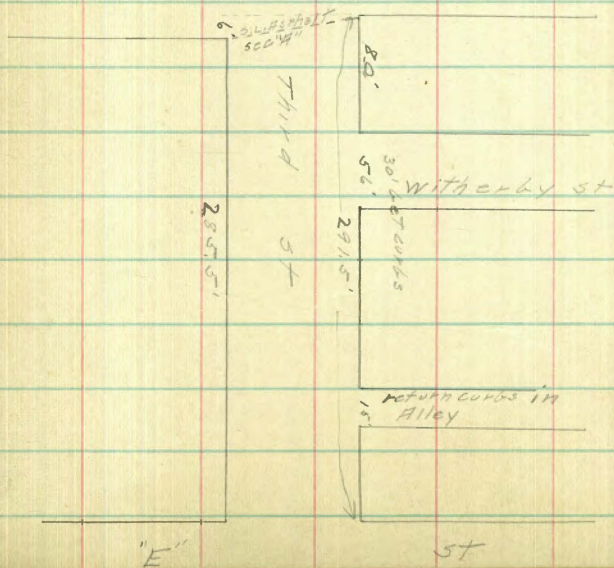 6'
Asphalt
sec "A"
80'
Third St
56'
30' bet curbs
Witherby st
285.5'
291.5'
return curbs in
Alley
"E" ST